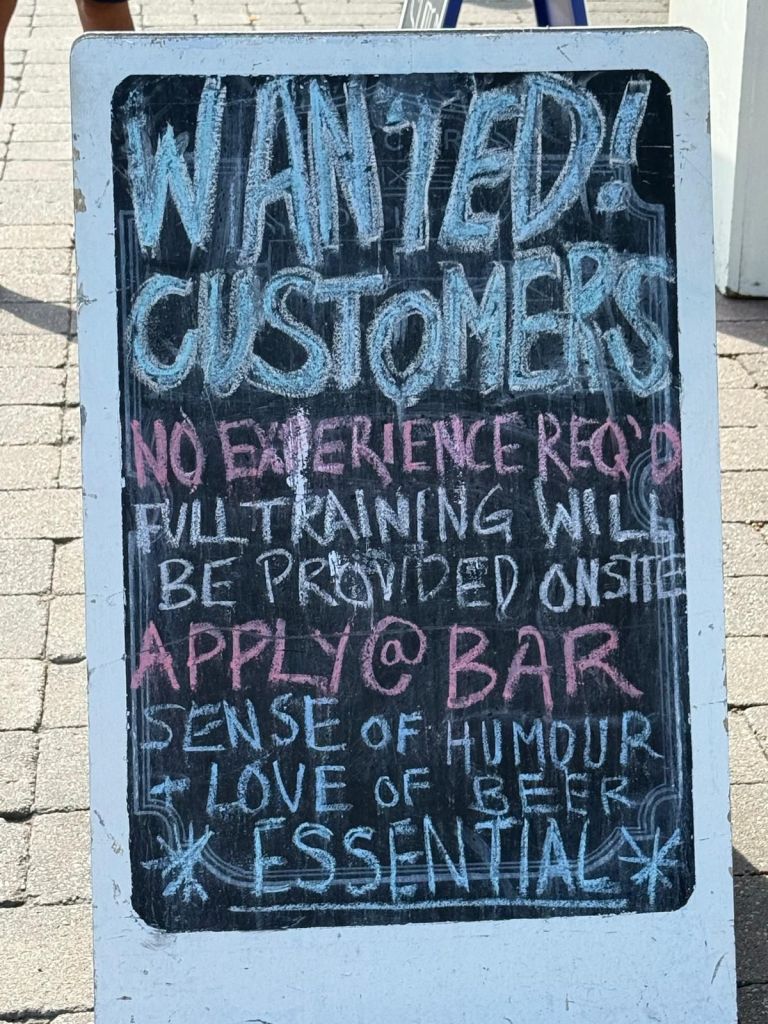 WANTED!
CUSTOMERS
NO EXPERIENCE REQ'D
FULL TRAINING WILL
BE PROVIDED ONSITE
APPLY @ BAR
SENSE OF HUMOUR
+ LOVE OF BEER
* ESSENTIAL *